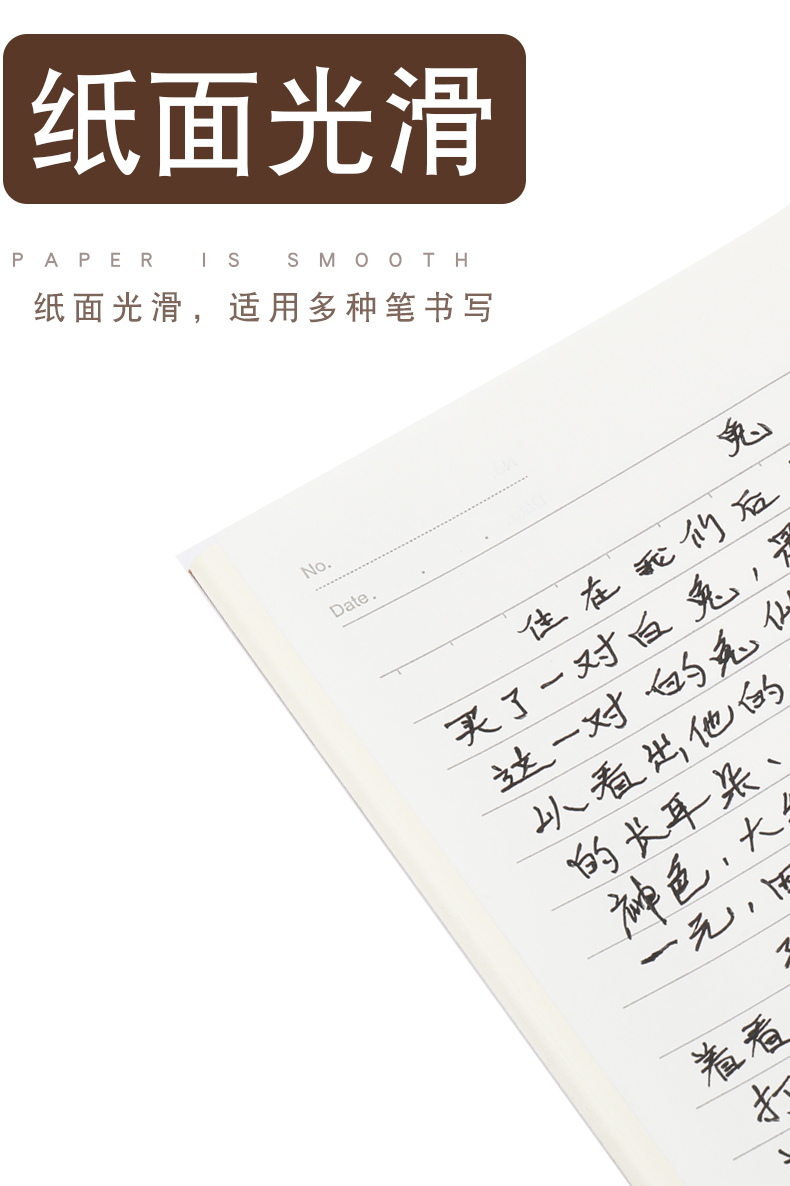 纸面光滑
PAPER IS SMOOTH
纸面光滑，适用多种笔书写
No.
Date.
兔
住在我们后
买了一对白兔，
这一对白的兔仙
从看出他的
的长耳朵、
神色，大
一元，
着看
打